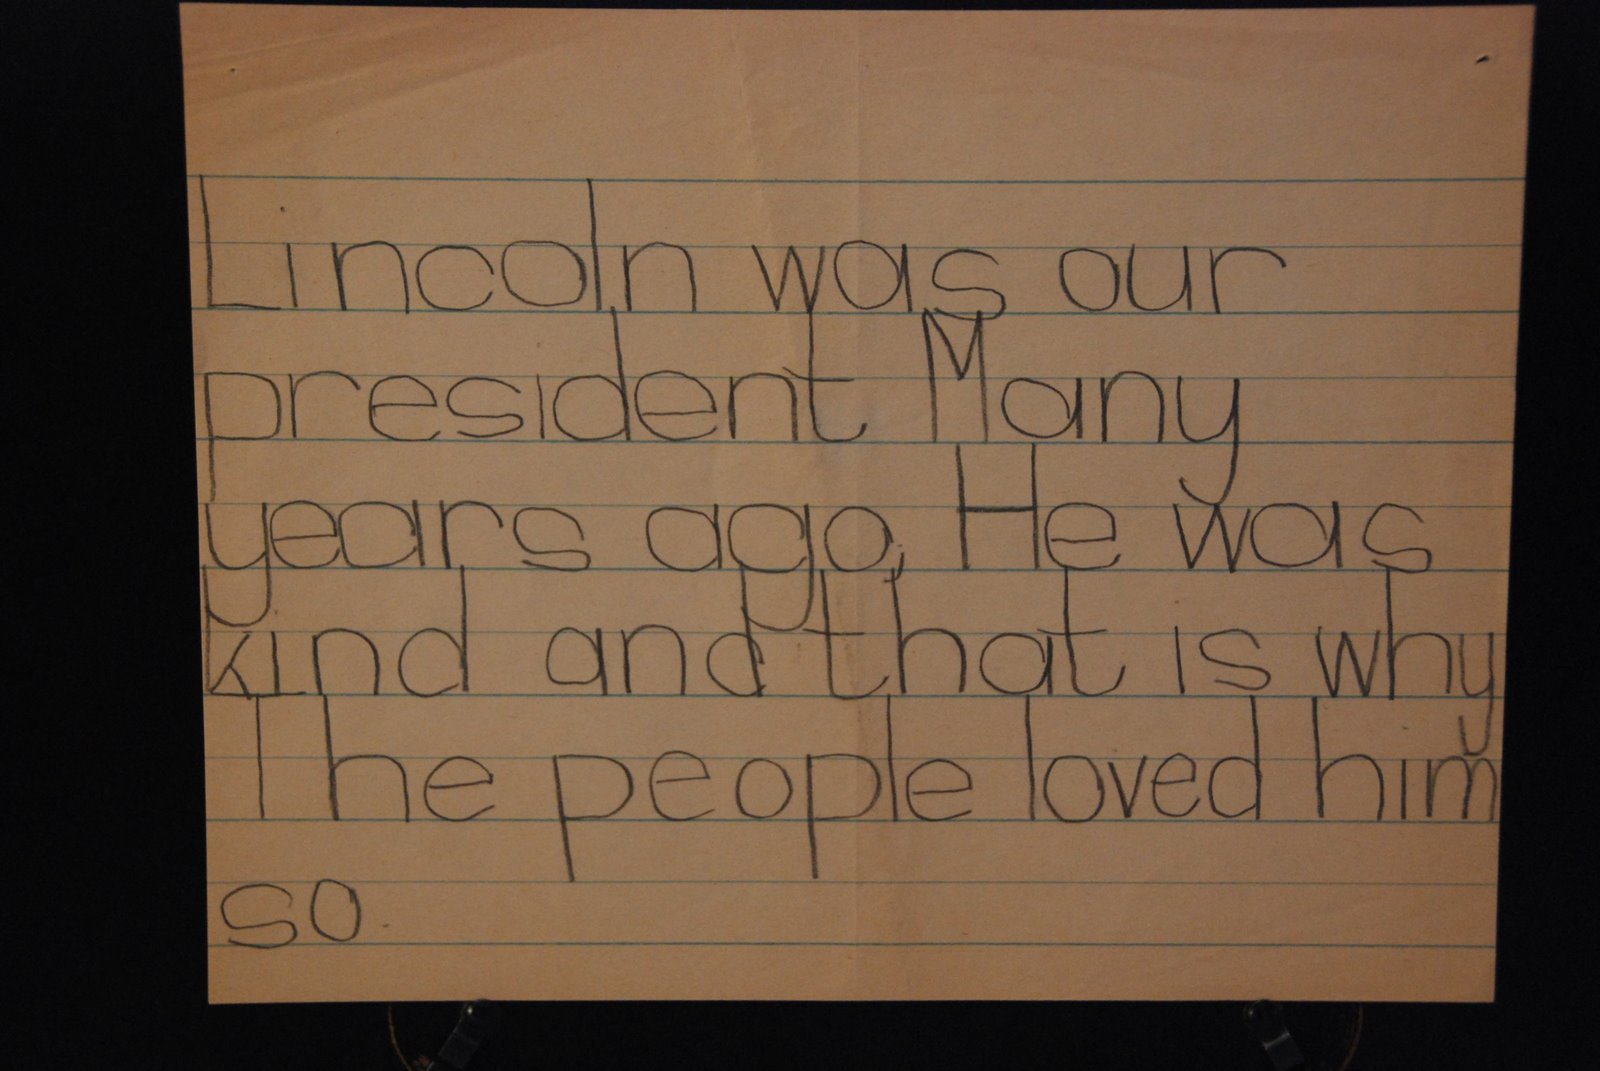 Lincoln was our
president Many
years ago, He was
kind and that is why
The people loved him
so.